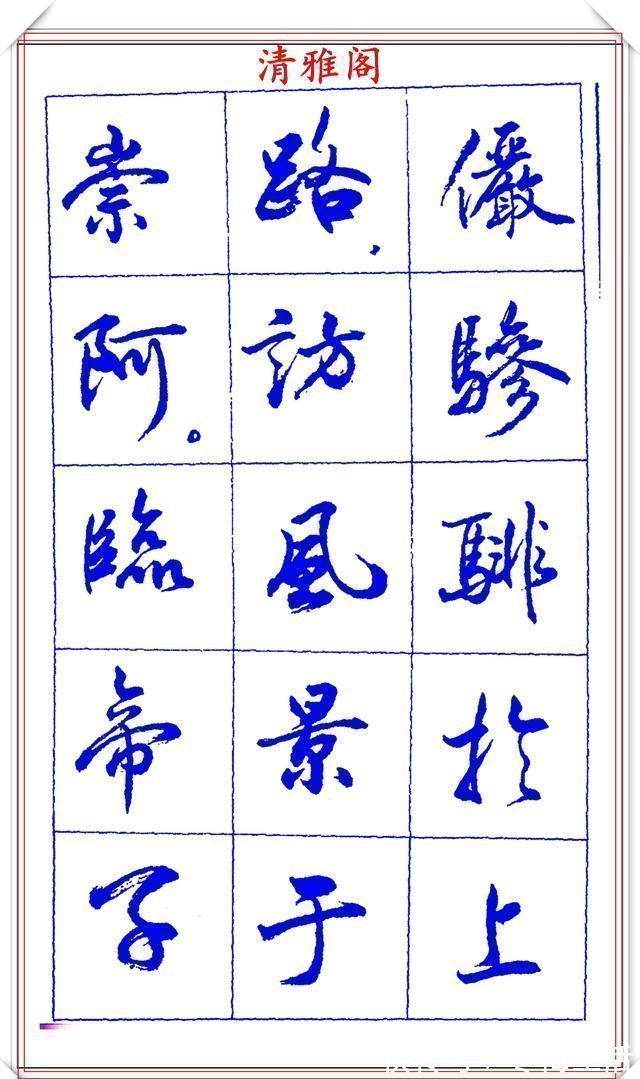 清雅阁
儼驂騑於上
路，訪風景于
崇阿。臨帝子